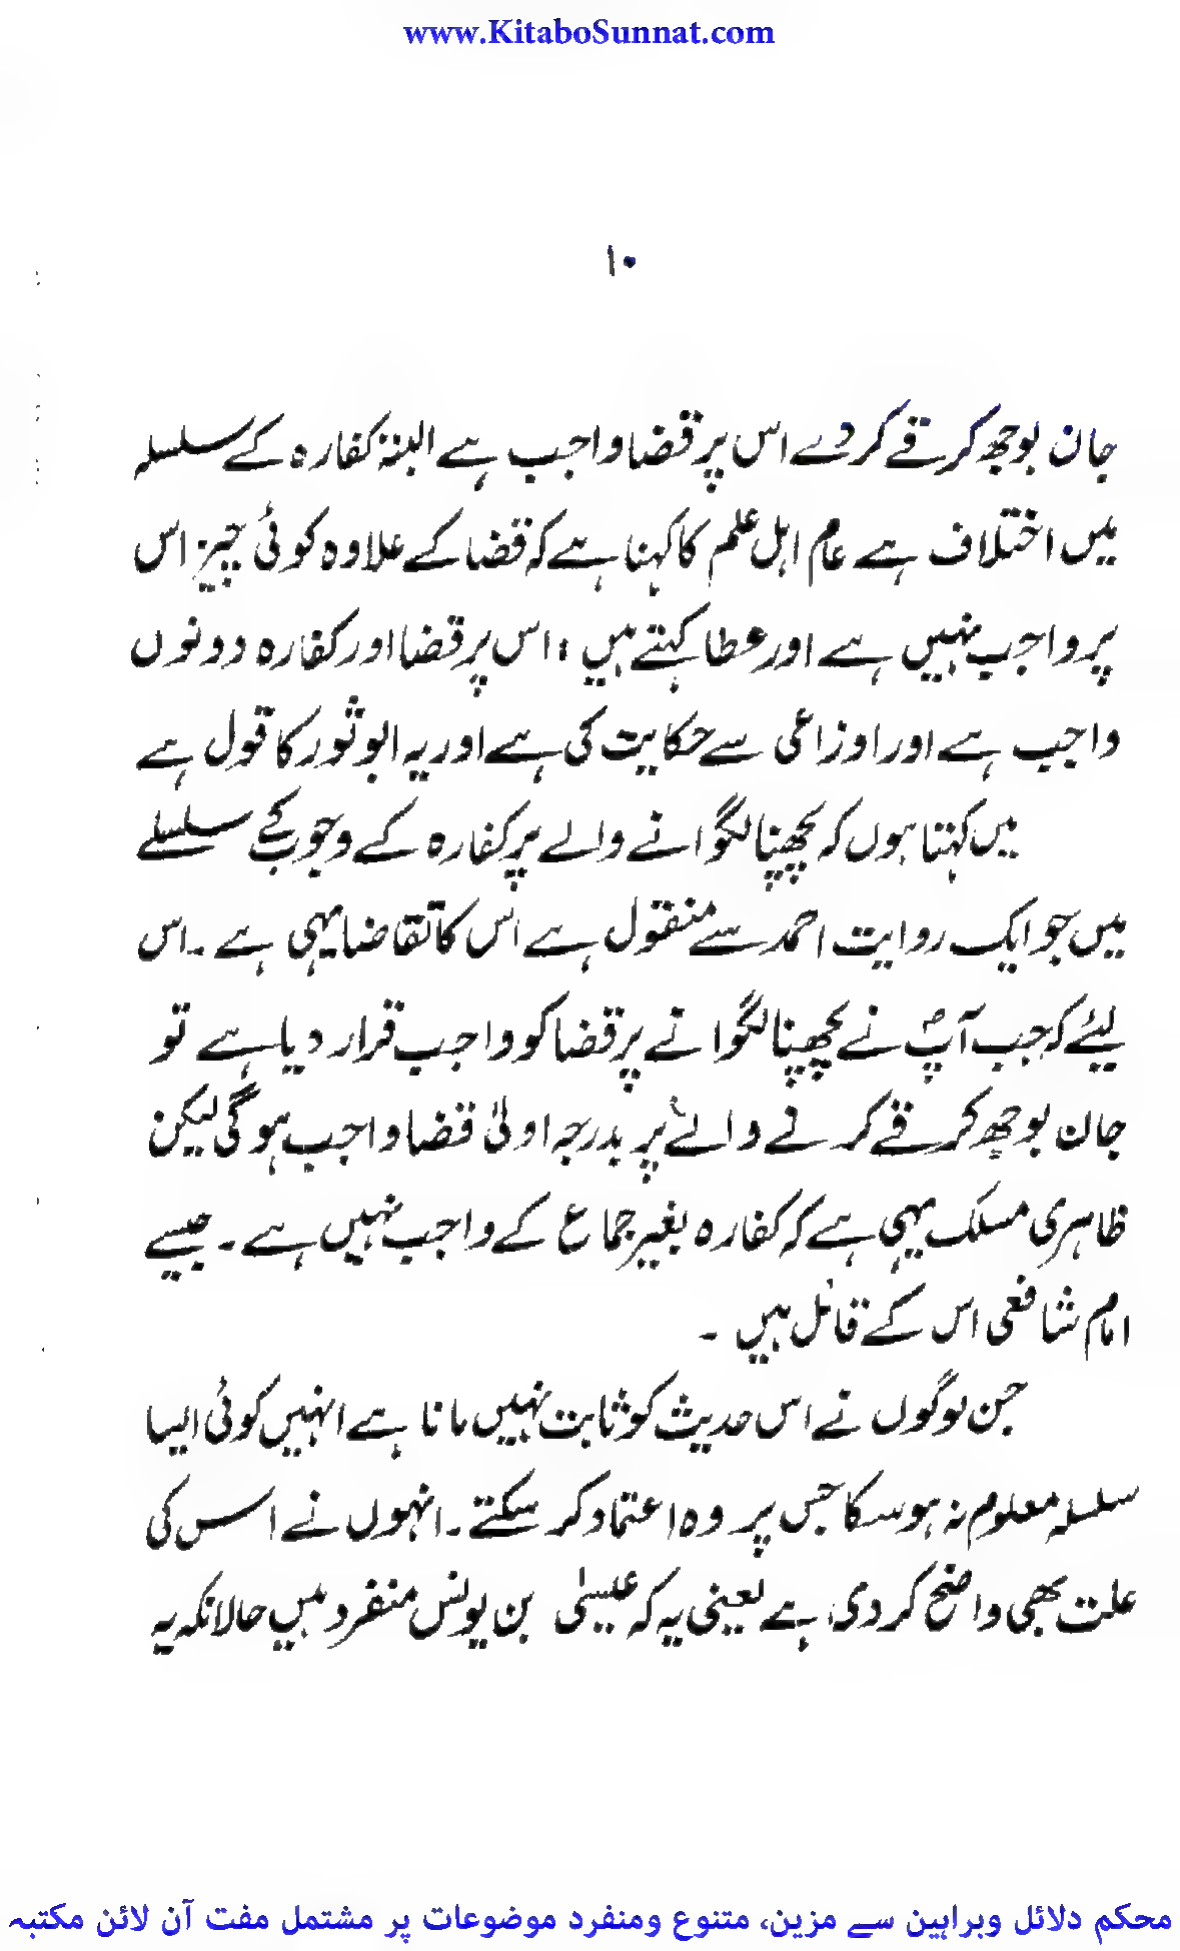 www.KitaboSunnat.com
۱۰
جان بوجھ کر قے کر دے اس پر قضا واجب ہے البتہ کفارہ کے سلسلہ
میں اختلاف ہے عام اہل علم کا کہنا ہے کہ قضا کے علاوہ کوئی چیز اس
پر واجب نہیں ہے اور عطا کہتے ہیں : اس پر قضا اور کفارہ دونوں
واجب ہے اور اوزاعی سے حکایت کی ہے اور یہ ابو ثور کا قول ہے
میں کہتا ہوں کہ پچھنا لگوانے والے پر کفارہ کے وجوب کے سلسلے
میں جو ایک روایت احمد سے منقول ہے اس کا تقاضا یہی ہے ۔ اس
لیئے کہ جب آپؐ نے پچھنا لگوانے پر قضا کو واجب قرار دیا ہے تو
جان بوجھ کر قے کرنے والے پر بدرجہ اولیٰ قضا واجب ہوگی لیکن
ظاہری مسلک یہی ہے کہ کفارہ بغیر جماع کے واجب نہیں ہے ۔ جیسے
امام شافعی اس کے قائل ہیں ۔
جن لوگوں نے اس حدیث کو ثابت نہیں مانا ہے انہیں کوئی ایسا
سلسلہ معلوم نہ ہو سکا جس پر وہ اعتماد کر سکتے ۔ انہوں نے اس کی
علت بھی واضح کر دی ہے یعنی یہ کہ عیسیٰ بن یونس منفرد ہیں حالانکہ یہ
محکم دلائل وبراہین سے مزین، متنوع ومنفرد موضوعات پر مشتمل مفت آن لائن مکتبہ